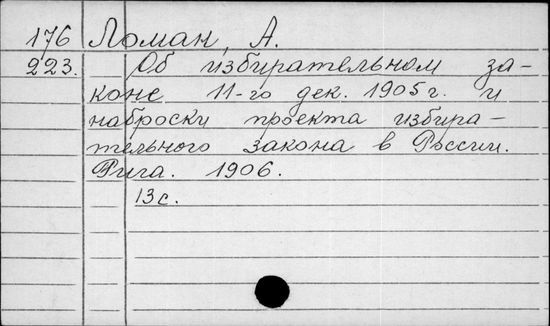 176 Ломан, А.
223. Об избирательном за-
коне 11-го дек. 1905 г. и
наброски проекта избира-
тельного закона в России.
Рига. 1906.
13 с.